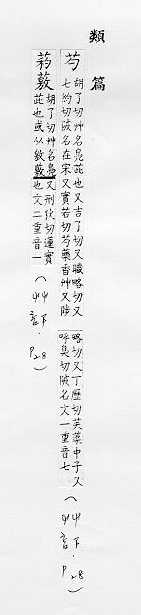 類篇
芍 胡了切艸名鳧茈也又吉了切又職略切又
七約切陂名在宋又實若切芍藥香艸又陟
略切又丁歷切芙蕖中子又
呼奚切陂名文一重音七(艸部下.P28)
葯藃 胡了切艸名鳧又刑狄切蓮實
茈也或从敫藃也文二重音一(艸部下.P28)